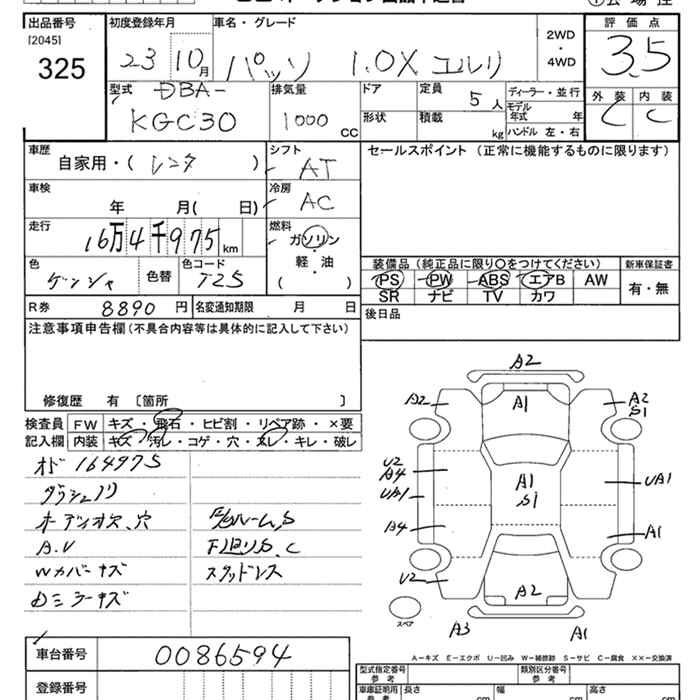 出品番号
[2045]
325
初度登録年月
23 10月
車名・グレード
パッソ 1.0X ユルリ
2WD
・
4WD
評価点
3.5
外装 内装
C C
型式
DBA-
KGC30
排気量
1000 CC
ドア
形状
定員 5 人
積載 kg
ディーラー・並行
モデル年式 年
ハンドル 左・右
車歴
自家用・( レンタ )
シフト
AT
セールスポイント (正常に機能するものに限ります)
車検
年 月( 日)
冷房
AC
走行
16万4千975km
燃料
ガソリン
・
軽・油
( )
色
色替
色コード
T25
装備品 (純正品に限り○をつけてください)
PS PW ABS エアB AW
SR ナビ TV カワ
新車保証書
有・無
R券 8890 円
名変通知期限 月 日
後日品
注意事項申告欄(不具合内容等は具体的に記入して下さい)
修復歴 有 [箇所 ]
検査員記入欄
FW キズ・飛石・ヒビ割・リペア跡・×要
内装 キズ・汚レ・コゲ・穴・スレ・キレ・破レ
オド 164975
オーディオス、穴
A.V
Wカバーキズ
Dミラーキズ
F/Gルーム、S
F廻りS、C
スタッドレス
A2
A2
A1
A2
S1
U2
A4
UA1
A1
S1
UA1
A4
A1
U2
A2
スペア
A3
A1
A-キズ E-エクボ U-凹み W-補修跡 S-サビ C-腐食 ××-交換済
車台番号
0086594
登録番号
型式指定番号
類別区分番号
車庫証明用
参考
長さ cm
幅 cm
高さ cm